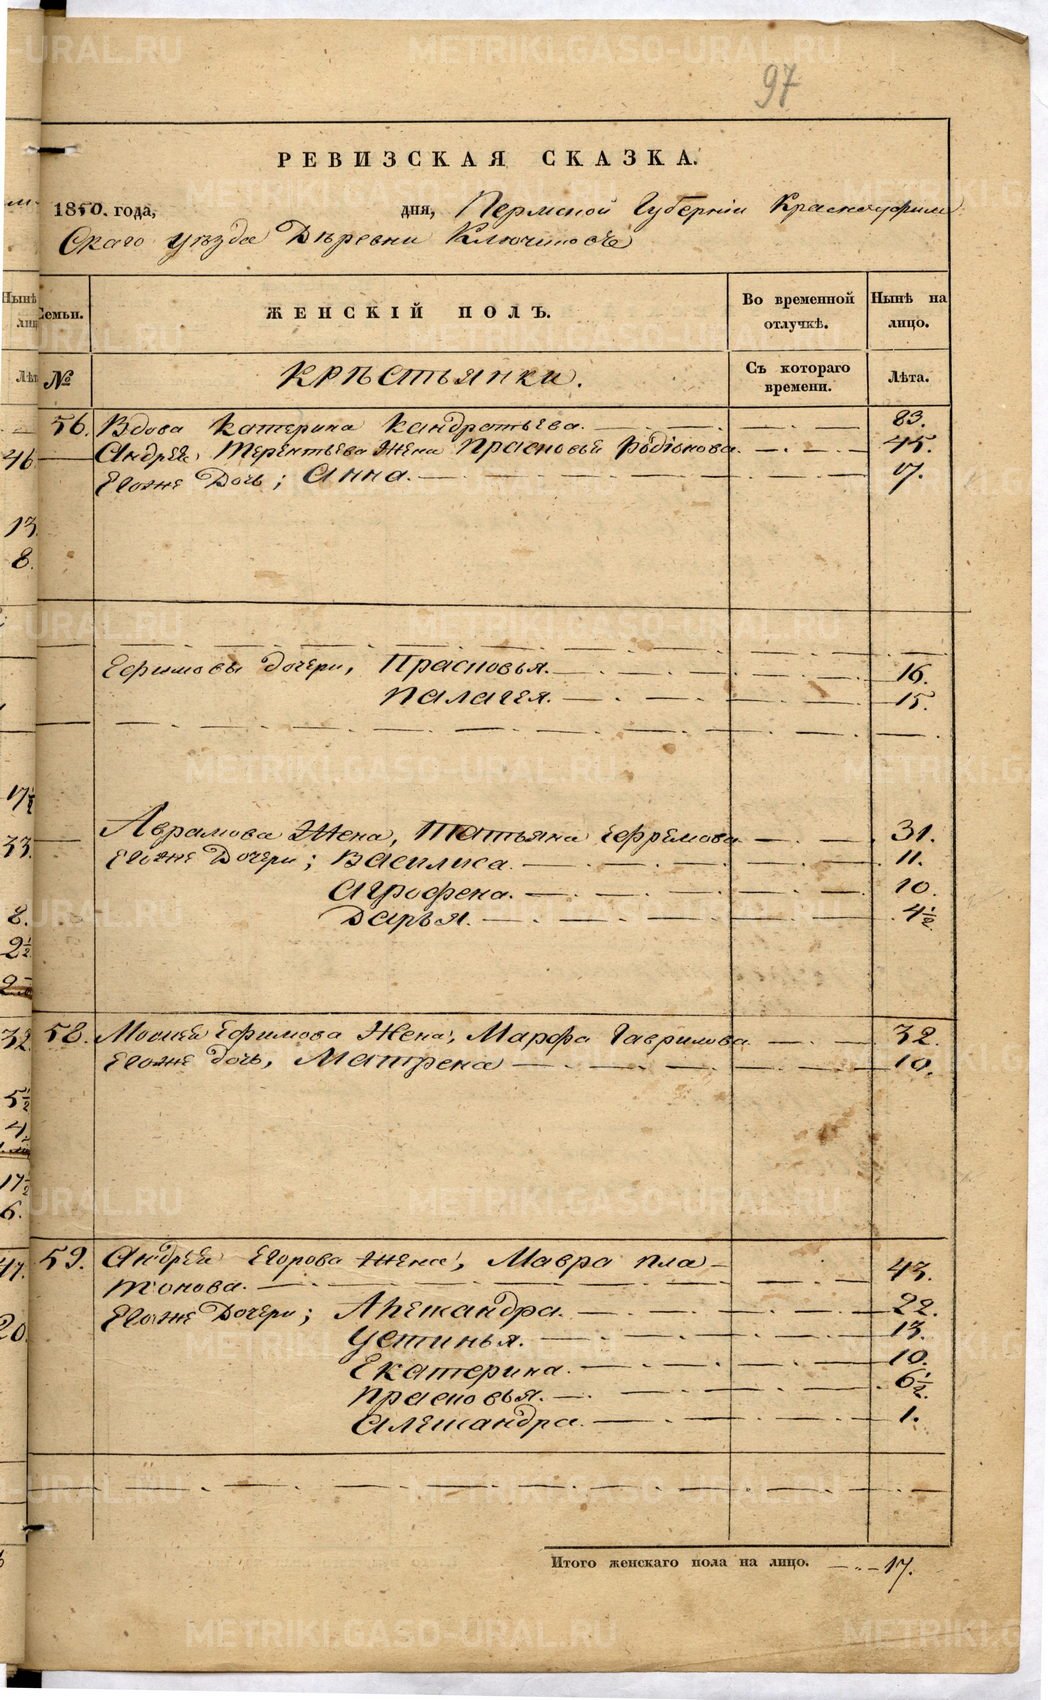 97
РЕВИЗСКАЯ СКАЗКА.
1850. года, дня, Пермской Губерніи Красноуфим
Скаго уѣзда Дѣревни Ключиковъ
Семьи. ЖЕНСКІЙ ПОЛЪ. Во временной отлучкѣ. Нынѣ на лицо.
№ Крѣстьянки. Съ котораго времени. Лѣта.
56. Вдова Катерина Кандратьева. 83.
Андрея Терентьева Жена Прасковья Родіонова. 45.
Егоже Дочь; Анна. 17.
Ефимовы Дочери, Прасковья. 16.
Палагея. 15.
Аврамова Жена, Татьяна Ефремова 31.
Егоже Дочери; Василиса. 11.
Агрофена. 10.
Дарья. 4½
58. Моисея Ефимова Жена, Марфа Гаврилова 32.
Егоже Дочь, Матрена 10.
59. Андрея Егорова Жена, Мавра Пла-
тонова. 43.
Егоже Дочери; Александра. 22.
Устинья. 13.
Екатерина. 10.
Прасковья. 6½
Александра. 1.
Итого женскаго пола на лицо. 17.
Нынѣ
лиц
Лѣт
46
13
8.
17½
33.
8.
2½
32
5½
4
17½
6.
47.
20.
METRIKI.GASO-URAL.RU